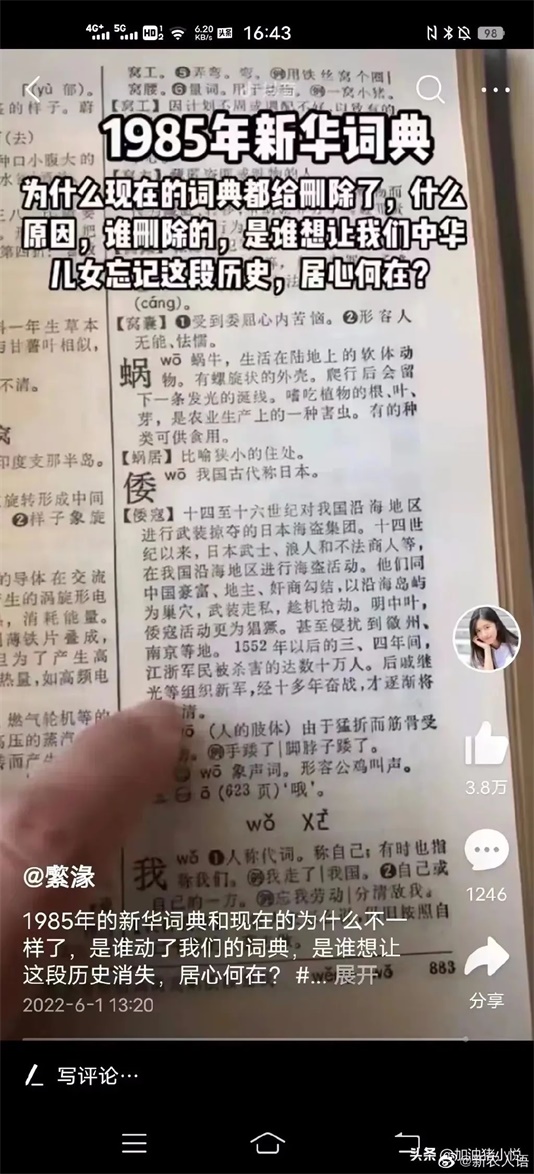 4G 5G HD 1 2 6.20 KB/s 头条 16:43 98
窝工。❺弄弯。弯。㊕用铁丝窝个圈|
窝腰。❻量词。用于动物。㊕一窝小猪。
(yù 郁)。
的样子。蔚
【窝工】因计划不周或调配不好，以致有的
1985年新华词典
为什么现在的词典都给删除了，什么
原因，谁删除的，是谁想让我们中华
儿女忘记这段历史，居心何在？
(去)
种口小腹大的
(cáng)。
【窝囊】❶受到委屈心内苦恼。❷形容人
无能、怯懦。
科一年生草本
与甘薯叶相似，
不清。
窝
印度支那半岛。
旋转形成中间
❷样子象旋
的导体在交流
产生的涡旋形电
，消耗能量。
用薄铁片叠成，
但为了产生高
热量，如高频电
燃气轮机等的
高压的蒸汽
转而产生
蜗 wō 蜗牛，生活在陆地上的软体动
物。有螺旋状的外壳。爬行后会留
下一条发光的涎线。嗜吃植物的根、叶、
芽，是农业生产上的一种害虫。有的种
类可供食用。
【蜗居】比喻狭小的住处。
倭 wō 我国古代称日本。
【倭寇】十四至十六世纪对我国沿海地区
进行武装掠夺的日本海盗集团。十四世
纪以来，日本武士、浪人和不法商人等，
在我国沿海地区进行海盗活动。他们同
中国豪富、地主、奸商勾结，以沿海岛屿
为巢穴，武装走私，趁机抢劫。明中叶，
倭寇活动更为猖獗。甚至侵扰到徽州、
南京等地。1552年以后的三、四年间，
江浙军民被杀害的达数十万人。后戚继
光等组织新军，经十多年奋战，才逐渐将
清。
(人的肢体)由于猛折而筋骨受
㊕手踒了|脚脖子踒了。
wō 象声词。形容公鸡叫声。
ō (623页)‘哦’。
wǒ ㄨㄛˇ
我 wǒ ❶人称代词。称自己；有时也指
我们。㊕我走了|我国。❷自己或
自己的一方。㊕忘我劳动|分清敌我。
883
3.8万
1246
分享
@繁湪
1985年的新华词典和现在的为什么不一
样了，是谁动了我们的词典，是谁想让
这段历史消失，居心何在？#... 展开
2022-6-1 13:20
写评论...
头条 @加油猪小悦
@新农人语